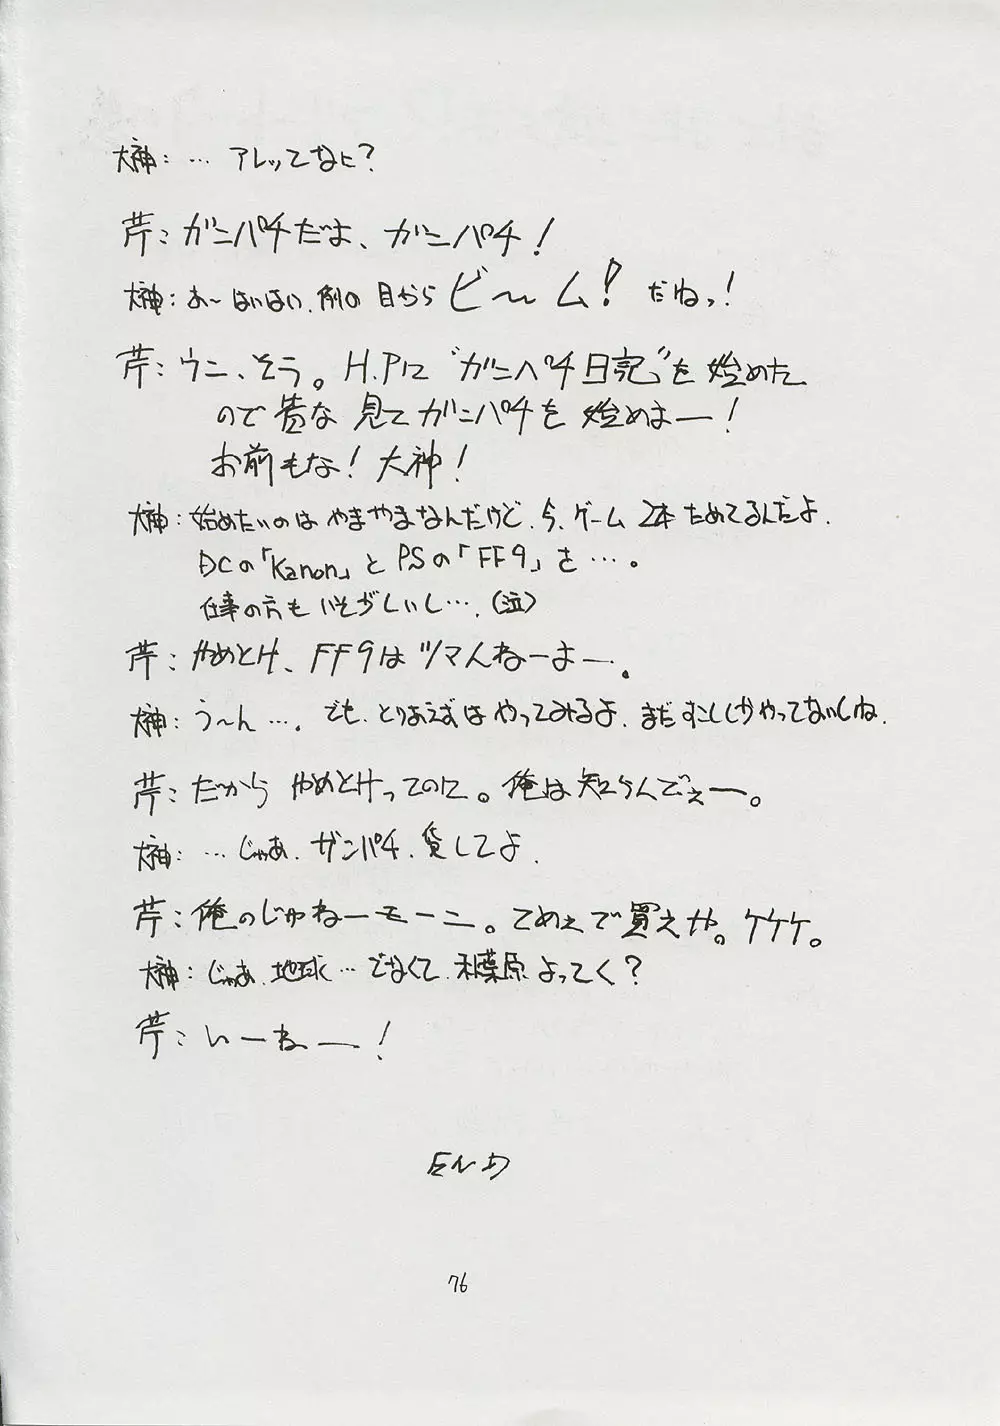 大神：… アレッてなに？
芹：ガンパチだよ、ガンパチ！
大神：あ〜はいはい、例の目からビ〜ム！だねっ！
芹：ウニ、そう。H.Pに“ガンパチ日記”を始めた
ので皆な見てガンパチを始めよー！
お前もな！大神！
大神：始めたいのはやまやまなんだけど、今、ゲーム2本ためてるんだよ、
DCの「Kanon」とPSの「FF9」を…。
仕事の方もいそがしいし…、（泣）
芹：やめとけ、FF9はツマんねーよー。
大神：う〜ん…。でも、とりあえずはやってみるよ、まだすこししかやってないしね、
芹：だからやめとけってのに。俺は知らんでぇー。
大神：…じゃあ、ガンパチ、貸してよ、
芹：俺のじゃねーモーニ。てめぇで買えや。ケケケ。
大神：じゃあ、地球…でなくて、秋葉原よってく？
芹：いーねー！
END
76